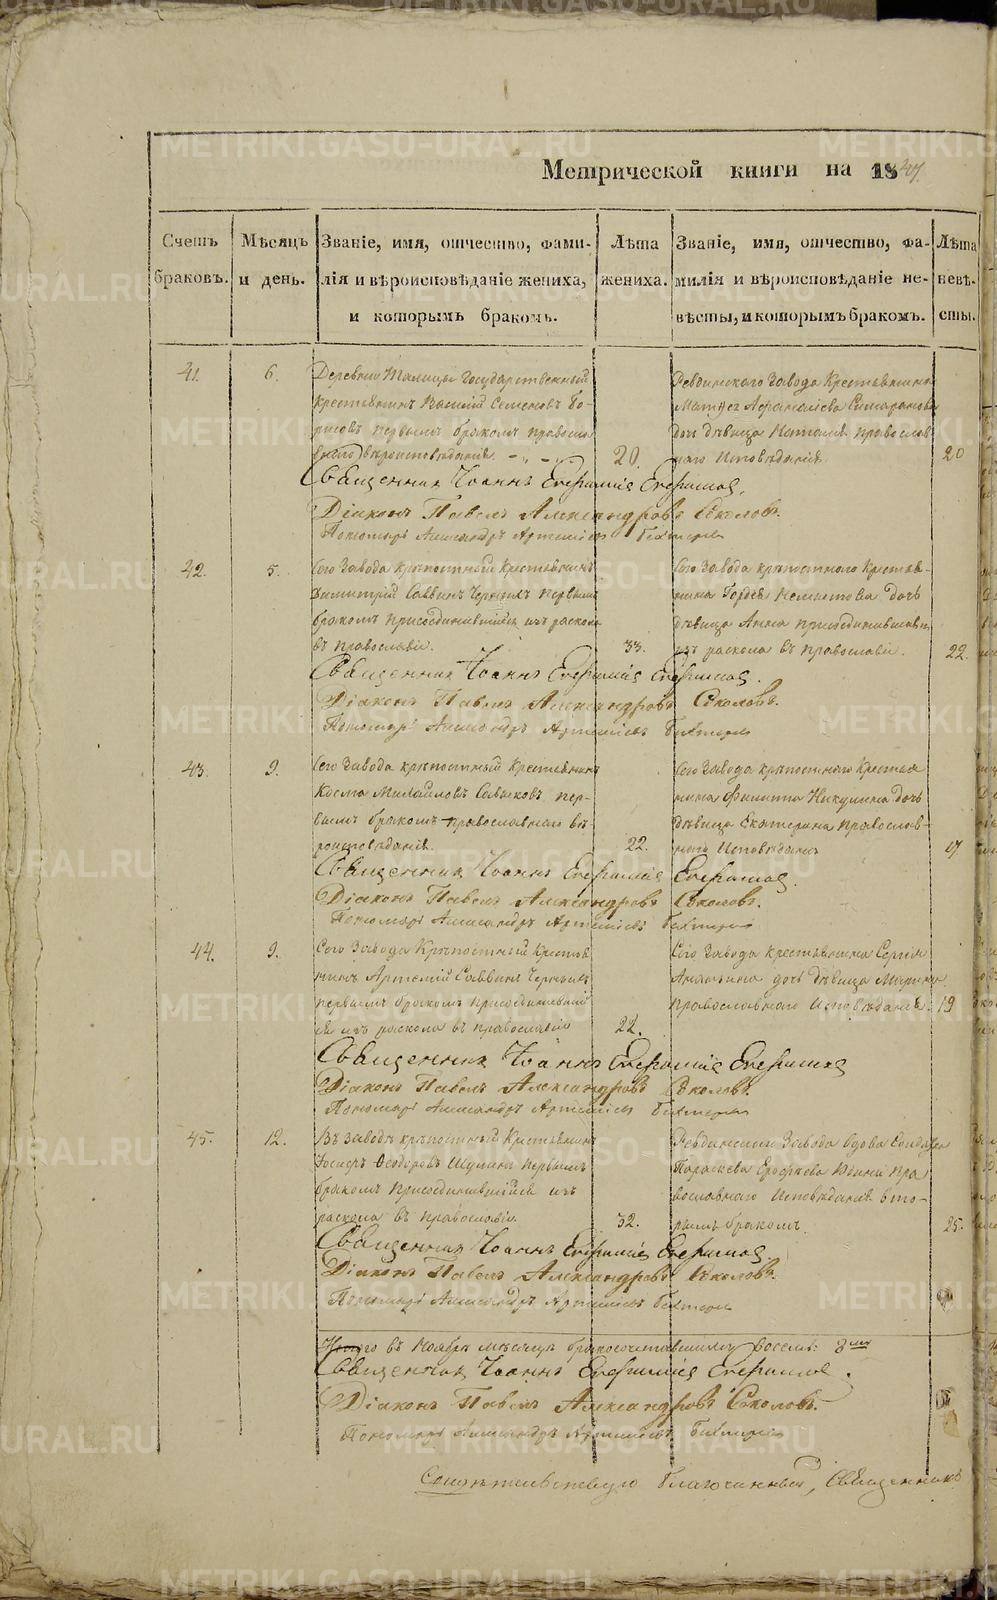 METRIKI.GASO-URAL.RU
Метрической книги на 1847
Счетъ браковъ.
Мѣсяцъ и день.
Званіе, имя, отчество, фами-
лія и вѣроисповѣданіе жениха,
и которымъ бракомъ.
Лѣта жениха.
Званіе, имя, отчество, фа-
милія и вѣроисповѣданіе не-
вѣсты, и которымъ бракомъ.
Лѣта невѣ-
сты.
41. 6.
Деревни Талицы Государственный
крестьянинъ Василій Семеновъ Бо-
рисовъ первымъ бракомъ правосла
внаго вѣроисповѣданія.
20.
Ревдинскаго Завода Крестьянина
дочь дѣвица Наталія православ
наго Исповѣданія
20
Священникъ Іоаннъ
Діаконъ Павелъ Александровъ Соколовъ.
Пономарь Александръ
42. 5.
Сего Завода крѣпостный Крестьянинъ
Димитрій Саввинъ Черныхъ первымъ
бракомъ присоединившійся изъ раскола
въ православіе.
33.
Сего Завода крѣпостного Крестья-
нина Гордѣя дочь
дѣвица Анна присоединившаяся
изъ раскола въ православіе.
22.
Священникъ Іоаннъ
Діаконъ Павелъ Александровъ Соколовъ.
Пономарь Александръ
43. 9.
Сего Завода крѣпостный Крестьянинъ
Косма Михайловъ пер-
вымъ бракомъ православнаго вѣ-
роисповѣданія.
22.
Сего Завода крѣпостного Крестья
нина Филиппа Никулина дочь
дѣвица Екатерина православ-
наго Исповѣданія
17
Священникъ Іоаннъ
Діаконъ Павелъ Александровъ Соколовъ.
Пономарь Александръ
44. 9.
Сего Завода Крѣпостный Крестья
нинъ Артемій Саввинъ Черныхъ
первымъ бракомъ присоединивший
ся изъ раскола въ православіе
22.
Сего Завода крестьянина Сергія
дочь дѣвица
православнаго Исповѣданія.
19
Священникъ Іоаннъ
Діаконъ Павелъ Александровъ Соколовъ.
Пономарь Александръ
45. 12.
Завода крѣпостный Крестьянинъ
Ѳеодоровъ первымъ
бракомъ присоединившійся изъ
раскола въ православіе.
32.
Ревдинскаго Завода вдова
Параскева Ерофеева пра
вославнаго Исповѣданія вто-
рымъ бракомъ
25.
Священникъ Іоаннъ
Діаконъ Павелъ Александровъ Соколовъ.
Пономарь Александръ
Итого въ Ноябрѣ мѣсяцѣ бракосочетавшихся восемь: 8
Священникъ Іоаннъ
Діаконъ Павелъ Александровъ Соколовъ.
Пономарь Александръ
Свидѣтельствую Благочинный, Священникъ